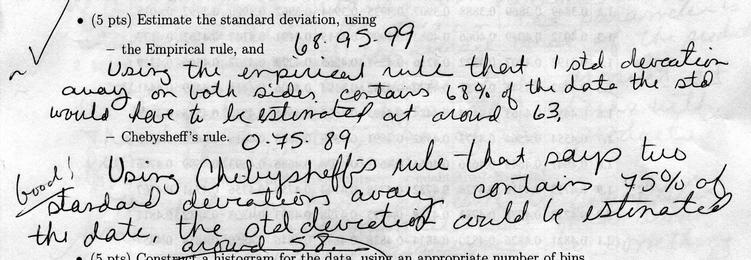 • (5 pts) Estimate the standard deviation, using
– the Empirical rule, and 68-95-99
Using the empirical rule that 1 std deveation
away on both sides contains 68% of the data the std
would have to be estimated at around 63,
– Chebysheff's rule. 0-75-89
Good! Using Chebysheffs rule that says two
standard deveations away contains 75% of
the data, the std deveation could be estimated
around 58.
• (5 pts) Construct a histogram for the data, using an appropriate number of bins